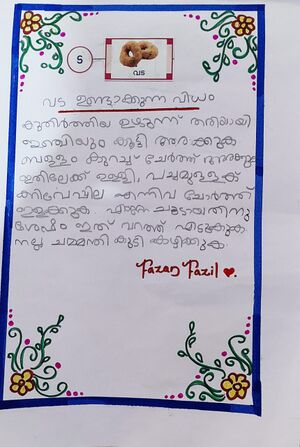 ട
വട
വട ഉണ്ടാക്കുന്ന വിധം
കുതിർത്തിയ ഉഴുന്ന് തരിയായി
ഇഞ്ചിയും കൂട്ടി അരക്കുക
വെള്ളം കുറച്ച് ചേർത്ത്
ഇതിലേക്ക് ഉള്ളി, പച്ചമുളക്
കറിവേപ്പില എന്നിവ ചേർത്ത്
ഇളക്കുക. എണ്ണ ചൂടായതിനു
ശേഷം ഇത് വറുത്ത് എടുക്കുക
നല്ല ചമ്മന്തി കൂട്ടി കഴിക്കുക.
Fazan Fazil